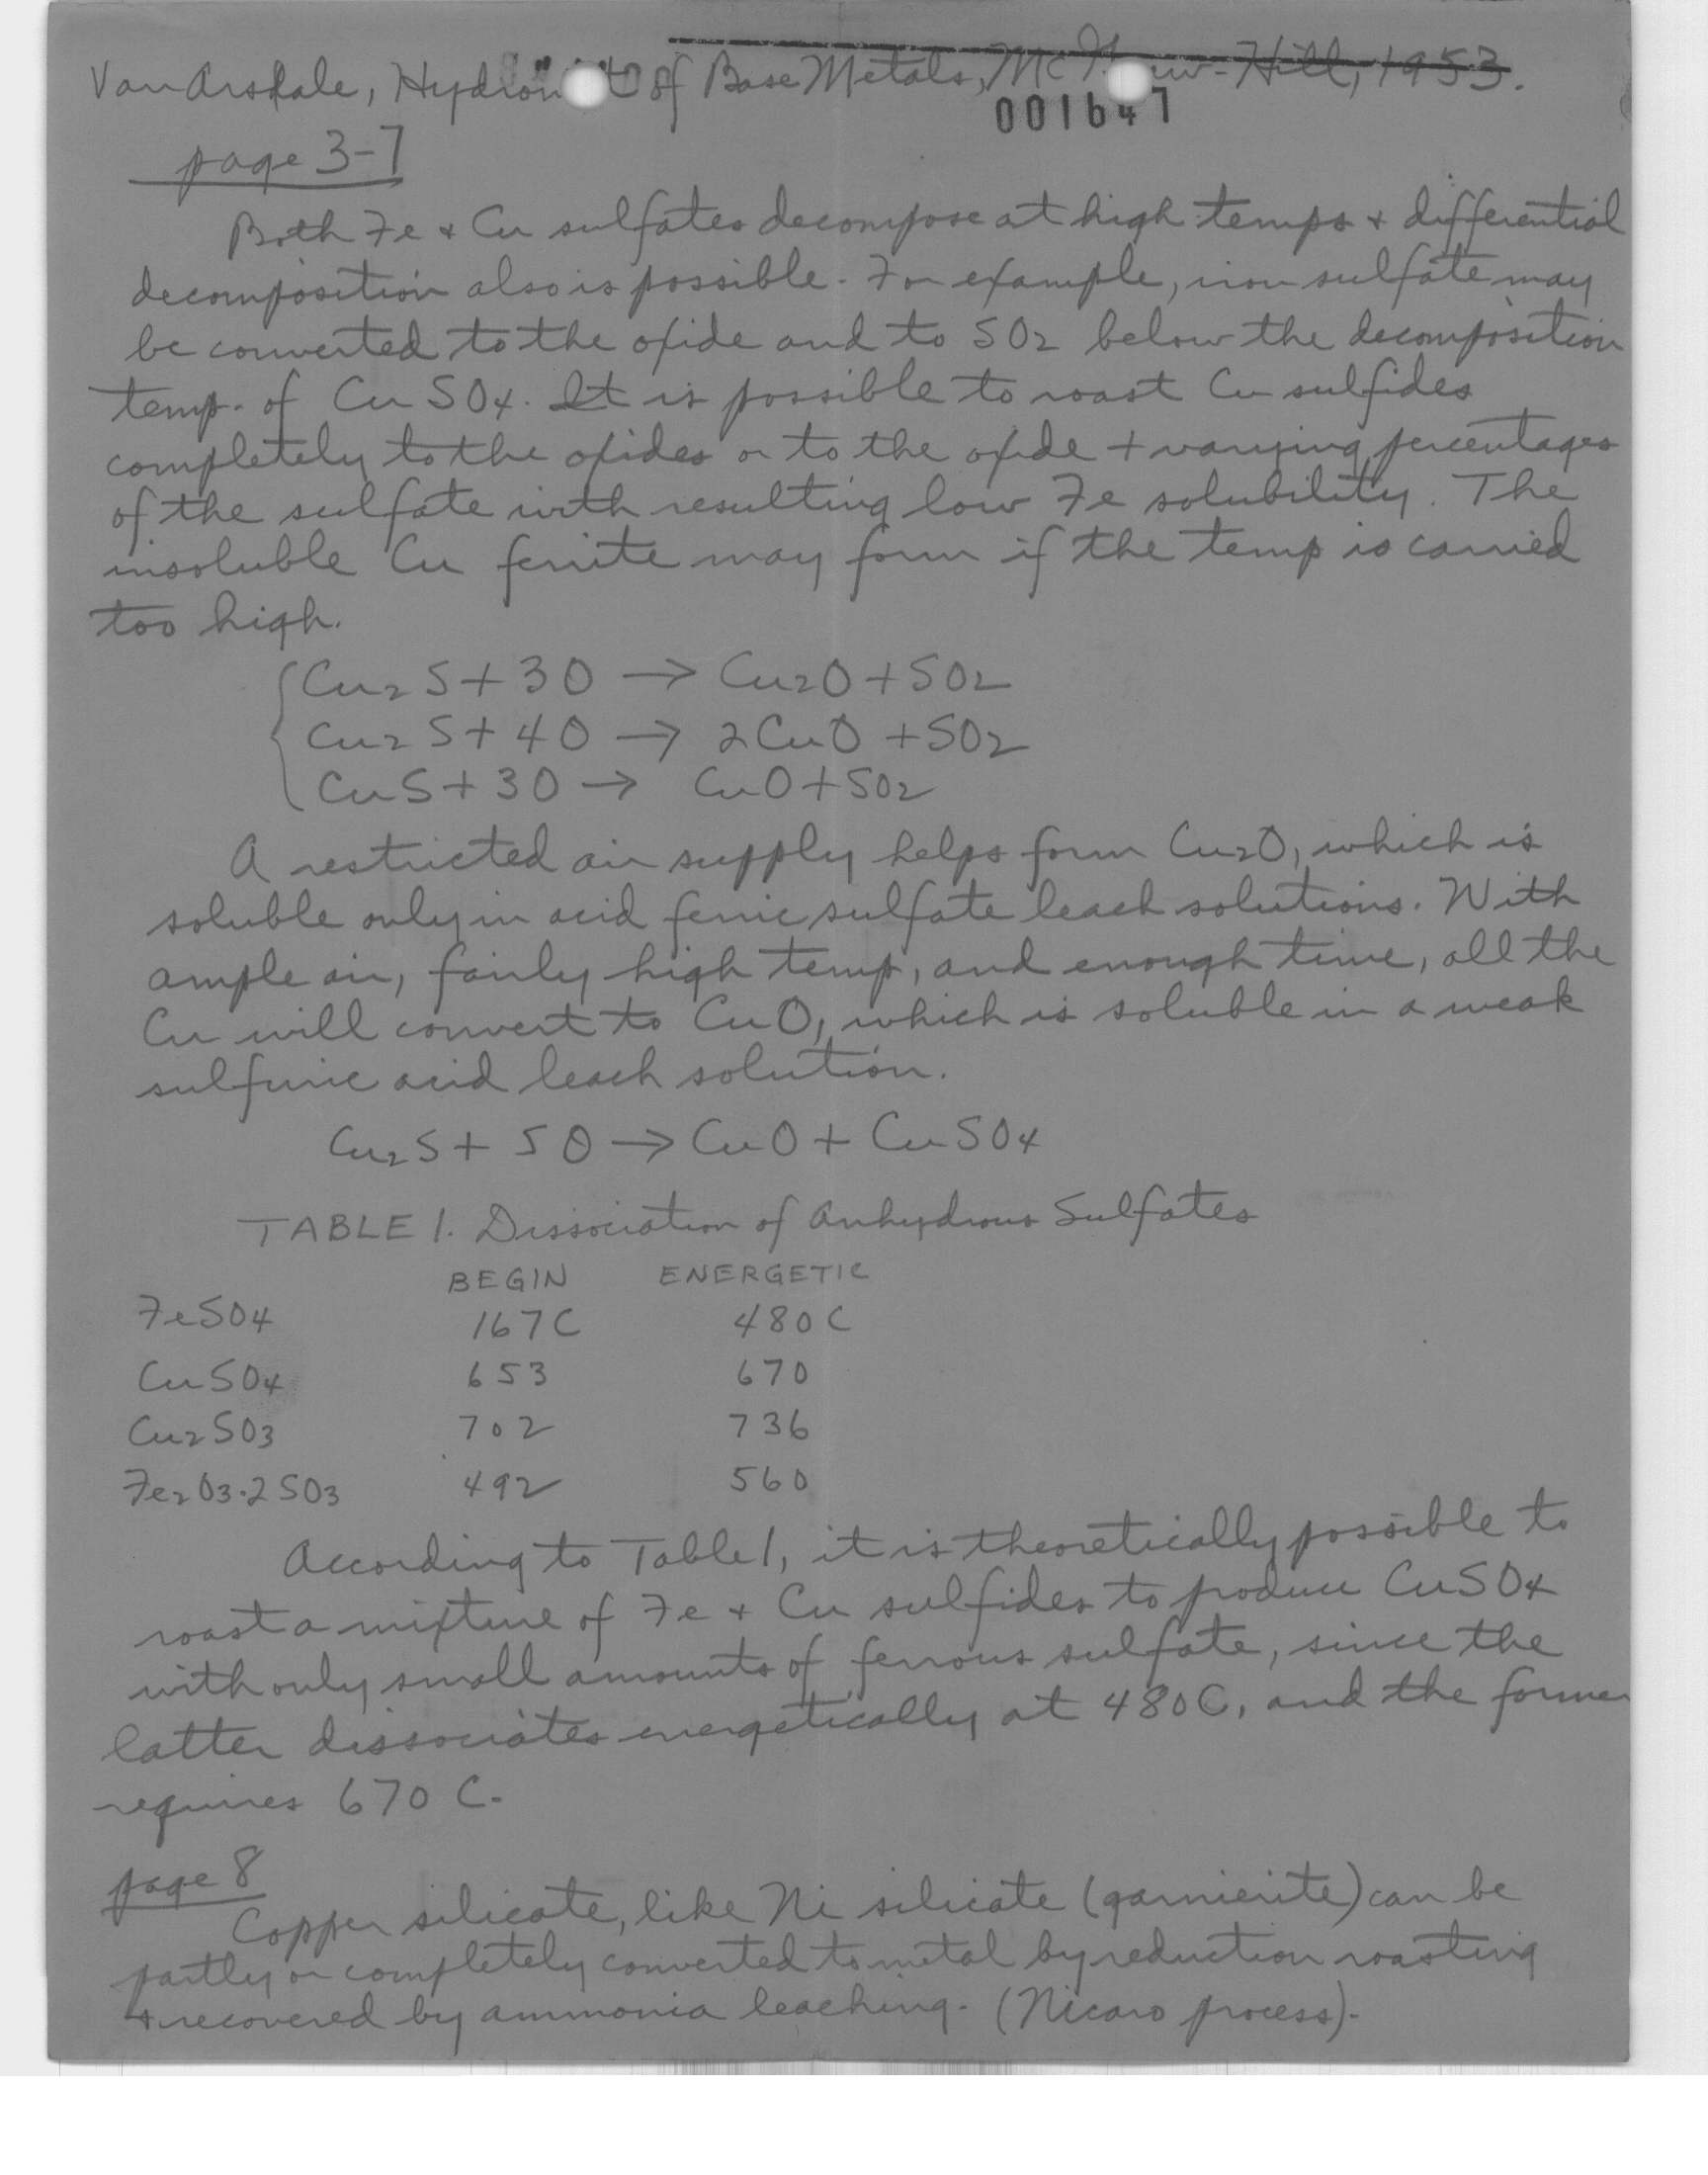 Van Arsdale, Hydromet of Base Metals, McGraw-Hill, 1953.
001647
page 3-7
Both Fe & Cu sulfates decompose at high temps & differential
decomposition also is possible. For example, iron sulfate may
be converted to the oxide and to SO2 below the decomposition
temp. of CuSO4. It is possible to roast Cu sulfides
completely to the oxides or to the oxide + varying percentages
of the sulfate with resulting low Fe solubility. The
insoluble Cu ferrite may form if the temp is carried
too high.
Cu2S + 3O → Cu2O + SO2
Cu2S + 4O → 2CuO + SO2
CuS + 3O → CuO + SO2
A restricted air supply helps form Cu2O, which is
soluble only in acid ferric sulfate leach solutions. With
ample air, fairly high temp, and enough time, all the
Cu will convert to CuO, which is soluble in a weak
sulfuric acid leach solution.
Cu2S + 5O → CuO + CuSO4
TABLE 1. Dissociation of Anhydrous Sulfates
BEGIN ENERGETIC
FeSO4 167C 480C
CuSO4 653 670
Cu2SO3 702 736
Fe2O3·2SO3 492 560
According to Table 1, it is theoretically possible to
roast a mixture of Fe & Cu sulfides to produce CuSO4
with only small amounts of ferrous sulfate, since the
latter dissociates energetically at 480C, and the former
requires 670 C.
page 8
Copper silicate, like Ni silicate (garnierite) can be
partly or completely converted to metal by reduction roasting
& recovered by ammonia leaching. (Nicaro process).